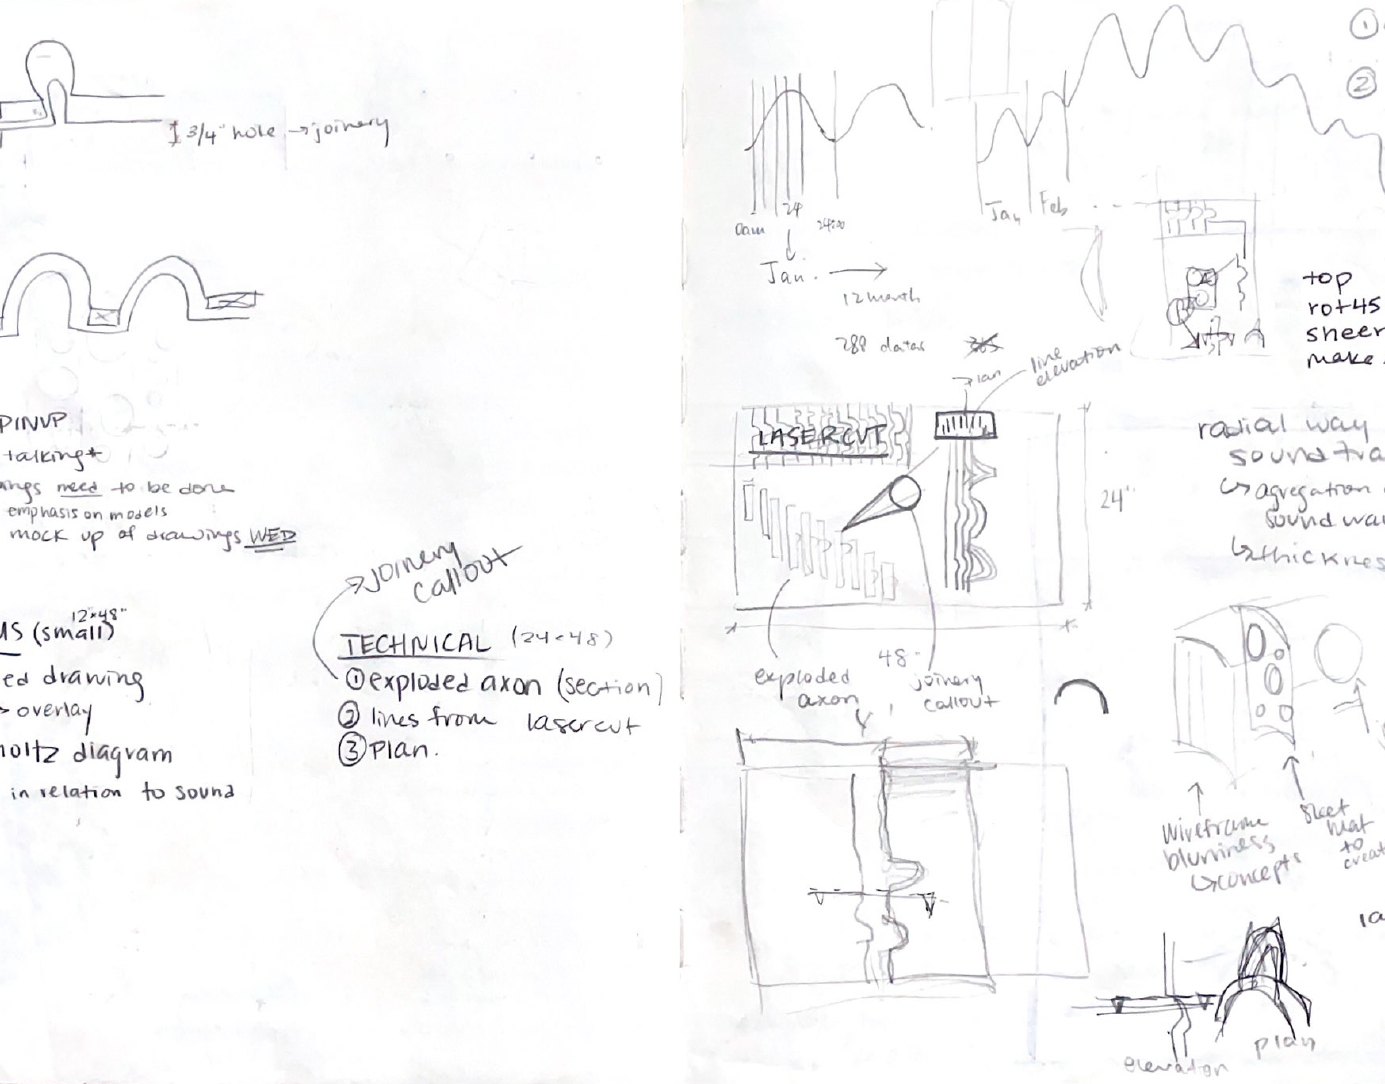 3/4" hole → joinery
PINUP
talking+
ings need to be done
emphasis on models
mock up of drawings WED
12"x48"
MS (small)
ed drawing
→ overlay
holtz diagram
in relation to sound
→ joinery
callout
TECHNICAL (24x48)
① exploded axon (section)
② lines from lasercut
③ plan.
①
②
0am
24
24:00
Jan.
12 month
288 datas
Jan
Feb
top
rot45
sheer
make.
plan
line
elevation
LASERCUT
24"
48"
exploded
axon
joinery
callout
radial way
sound tra
↳ agregation
sound wa
↳ thicknes
wireframe
blurriness
↳ concepts
sheet
mat
to
creat
la
elevation
plan